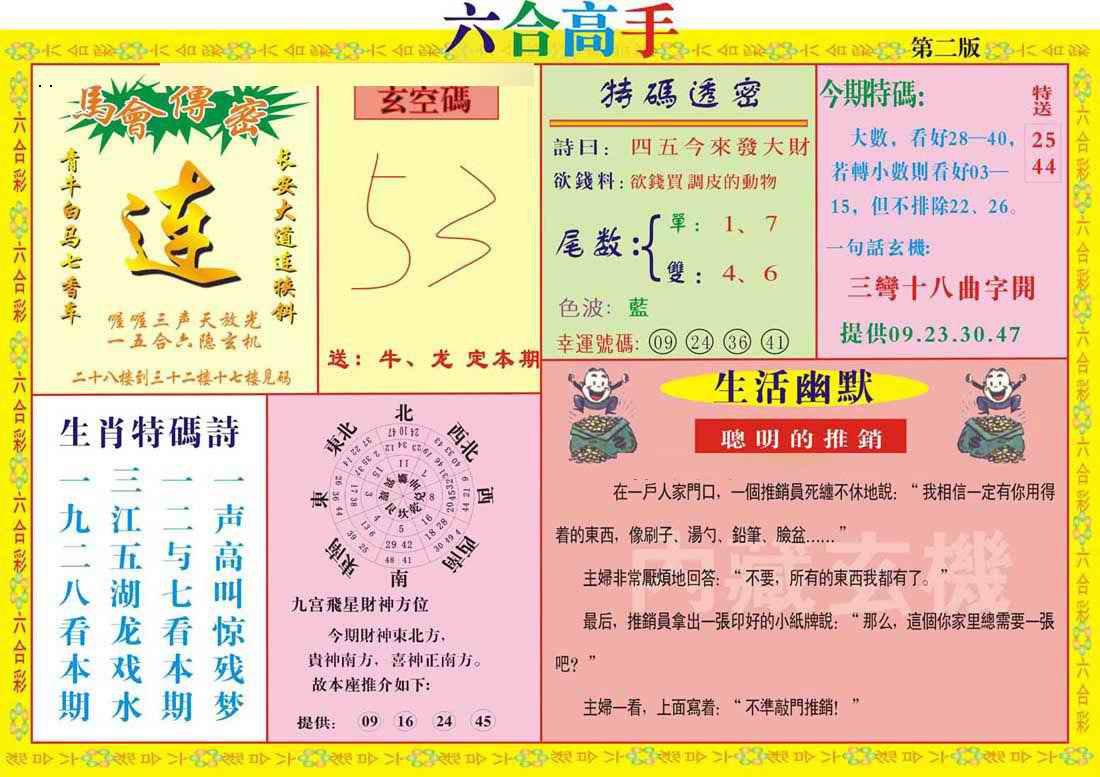 六合高手
第二版
馬會傳密
青牛白马七香车
连
长安大道连狭斜
喔喔三声天放光
一五合六隐玄机
二十八楼到三十二楼十七楼见码
玄空碼
53
送：牛、龙 定本期
特碼透密
詩曰：四五今來發大財
欲錢料：欲錢買調皮的動物
尾数：
單：1、7
雙：4、6
色波：藍
幸運號碼：09 24 36 41
今期特碼：
特送
25
44
大數，看好28—40，
若轉小數則看好03—
15，但不排除22、26。
一句話玄機：
三彎十八曲字開
提供09.23.30.47
生肖特碼詩
一声高叫惊残梦
一二与七看本期
三江五湖龙戏水
一九二八看本期
北
西北
西
西南
南
東南
東
東北
九宫飛星財神方位
今期財神東北方，
貴神南方，喜神正南方。
故本座推介如下：
提供：09 16 24 45
生活幽默
聰明的推銷
在一戶人家門口，一個推銷員死纏不休地說：“我相信一定有你用得
着的東西，像刷子、湯勺、鉛筆、臉盆……”
主婦非常厭煩地回答：“不要，所有的東西我都有了。”
最后，推銷員拿出一張印好的小紙牌說：“那么，這個你家里總需要一張
吧？”
主婦一看，上面寫着：“不準敲門推銷！”
内藏玄機
六合彩